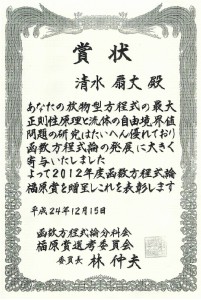 賞状
清水 扇丈 殿
あなたの放物型方程式の最大
正則性原理と流体の自由境界値
問題の研究はたいへん優れており
函数方程式論の発展に大きく
寄与いたしました
よって2012年度函数方程式論
福原賞を贈呈しこれを表彰します
平成24年12月15日
函数方程式論分科会
福原賞選考委員会
委員長 林 仲夫